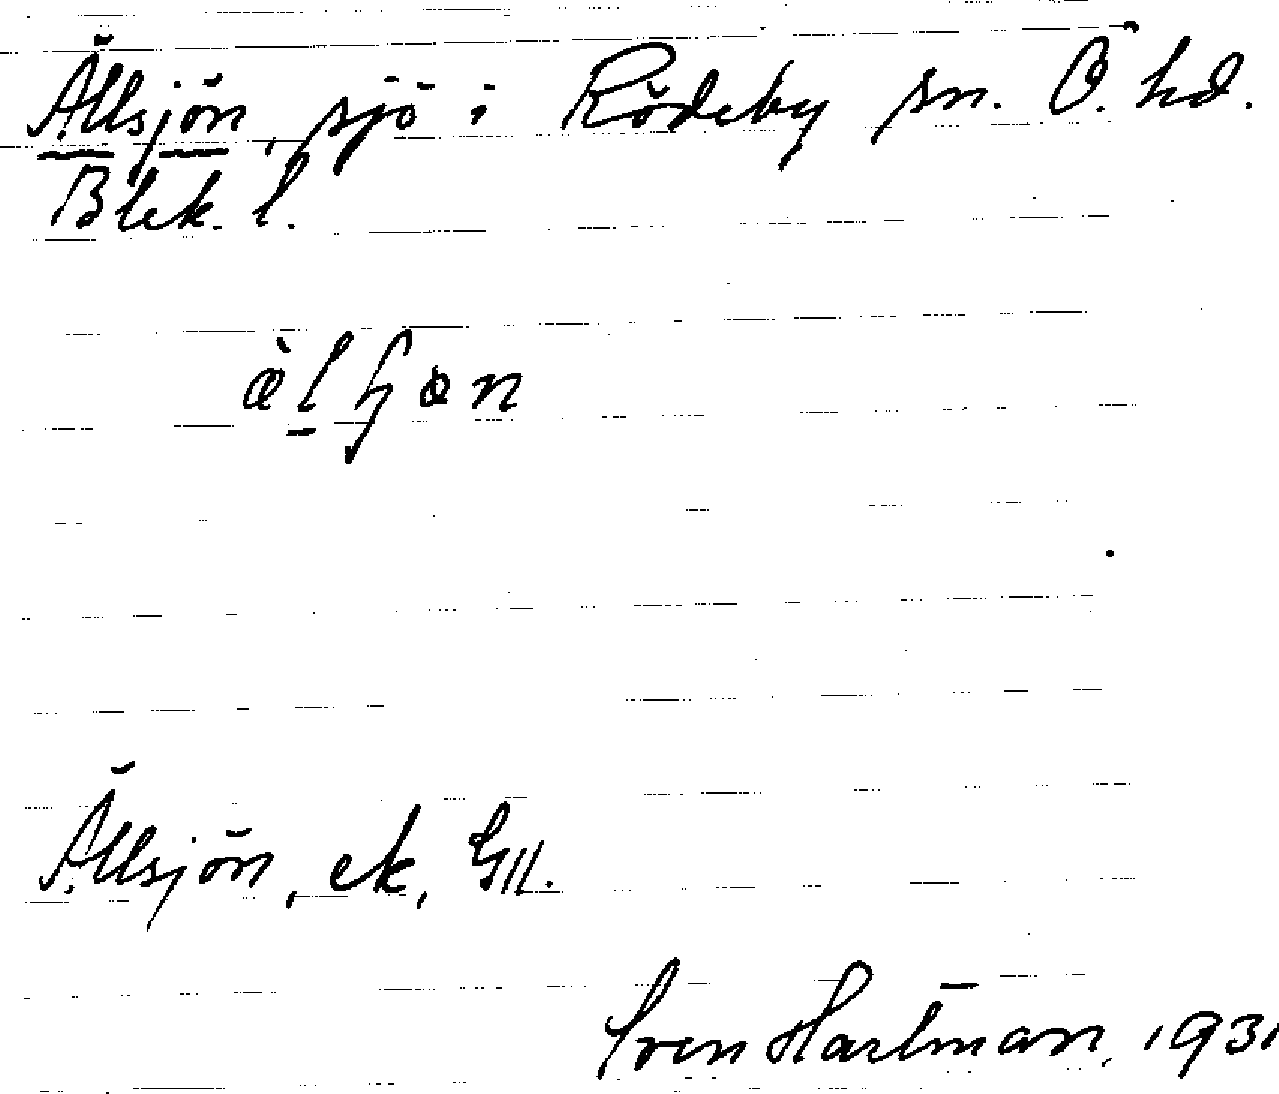 Ällsjön, sjö i Rödeby sn. Ö. hd.
Blek. l.
Ällsjön, ek, GII.
Sven Hartman, 1931